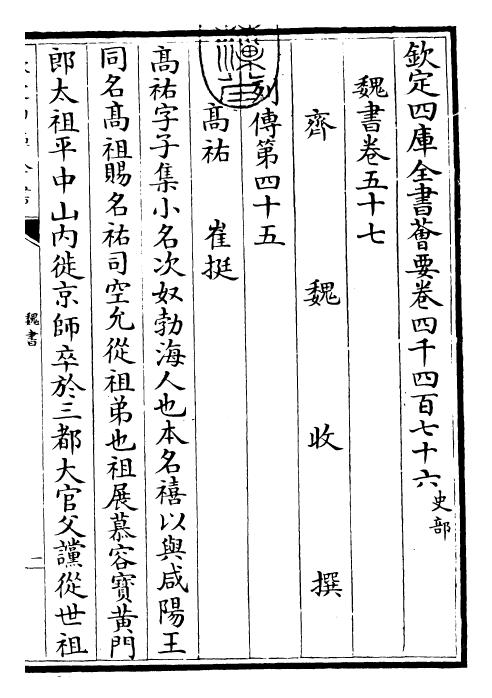 欽定四庫全書薈要卷四千四百七十六史部
魏書卷五十七
齊　魏　收　撰
列傳第四十五
髙祐　崔挺
髙祐字子集小名次奴勃海人也本名禧以與咸陽王
同名髙祖賜名祐司空允從祖弟也祖展慕容寳黄門
郎太祖平中山内徙京師卒於三都大官父讜從世祖
魏書